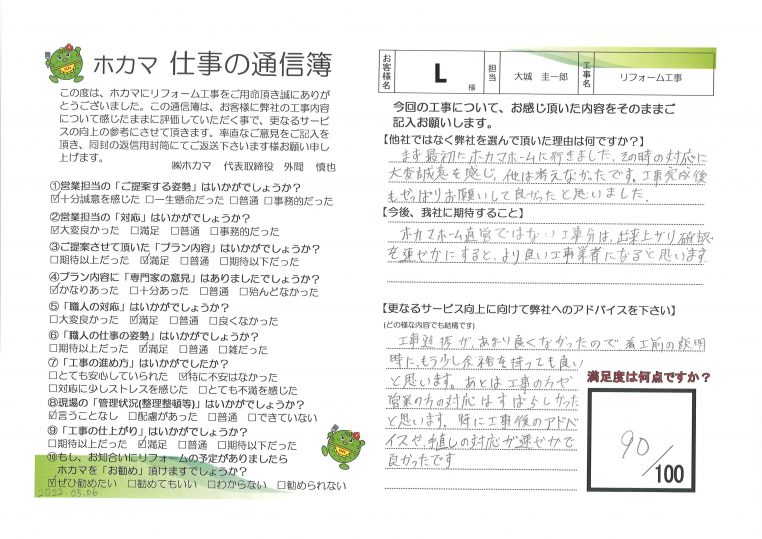 ホカマ 仕事の通信簿
この度は、ホカマにリフォーム工事をご用命頂き誠にありが
とうございました。この通信簿は、お客様に弊社の工事内容
について感じたままに評価していただく事で、更なるサービ
スの向上の参考にさせて頂きます。率直なご意見をご記入を
頂き、同封の返信用封筒にてご返送下さいます様お願い申し
上げます。
㈱ホカマ 代表取締役 外間 慎也
①営業担当の「ご提案する姿勢」はいかがでしょうか?
☑十分誠意を感じた □一生懸命だった □普通 □事務的だった
②営業担当の「対応」はいかがでしょうか?
☑大変良かった □満足 □普通 □事務的だった
③ご提案させて頂いた「プラン内容」はいかがでしょうか?
□期待以上だった ☑満足 □普通 □期待以下だった
④プラン内容に「専門家の意見」はありましたでしょうか?
☑かなりあった □十分あった □普通 □殆んどなかった
⑤「職人の対応」はいかがでしょうか?
□大変良かった ☑満足 □普通 □良くなかった
⑥「職人の仕事の姿勢」はいかがでしょうか?
□期待以上だった ☑満足 □普通 □雑だった
⑦「工事の進め方」はいかがでしたか?
□とても安心していられた ☑特に不安はなかった
□対応に少しストレスを感じた □とても不満を感じた
⑧現場の「管理状況(整理整頓等)」はいかがでしょうか?
☑言うことなし □配慮があった □普通 □できていない
⑨「工事の仕上がり」はいかがでしょうか?
□期待以上だった ☑満足 □普通 □期待以下だった
⑩もし、お知合いにリフォームの予定がありましたら
ホカマを「お勧め」頂けますでしょうか?
☑ぜひ勧めたい □勧めてもいい □わからない □勧められない
2022.05.06
お客様名 L 様 担当 大城 圭一郎 工事名 リフォーム工事
今回の工事について、お感じ頂いた内容をそのままご
記入お願いします。
【他社ではなく弊社を選んで頂いた理由は何ですか?】
まず最初にホカマホームに行きました。その時の対応に
大変誠意を感じ、他は考えなかったです。工事完成後
もやっぱりお願いして良かったと思いました。
【今後、我社に期待すること】
ホカマホーム直営ではない工事分は、出来上がり確認
を速やかにすると、より良い工事業者になると思います
【更なるサービス向上に向けて弊社へのアドバイスを下さい】
(どの様な内容でも結構です)
工事進捗が、あまり良くなかったので着工前の説明
時に、もう少し余裕を持っても良い
と思います。あとは工事の方や
営業の方の対応はすばらしかった
と思います。特に工事後のアドバ
イスや、手直しの対応が速やかで
良かったです
満足度は何点ですか?
90/100